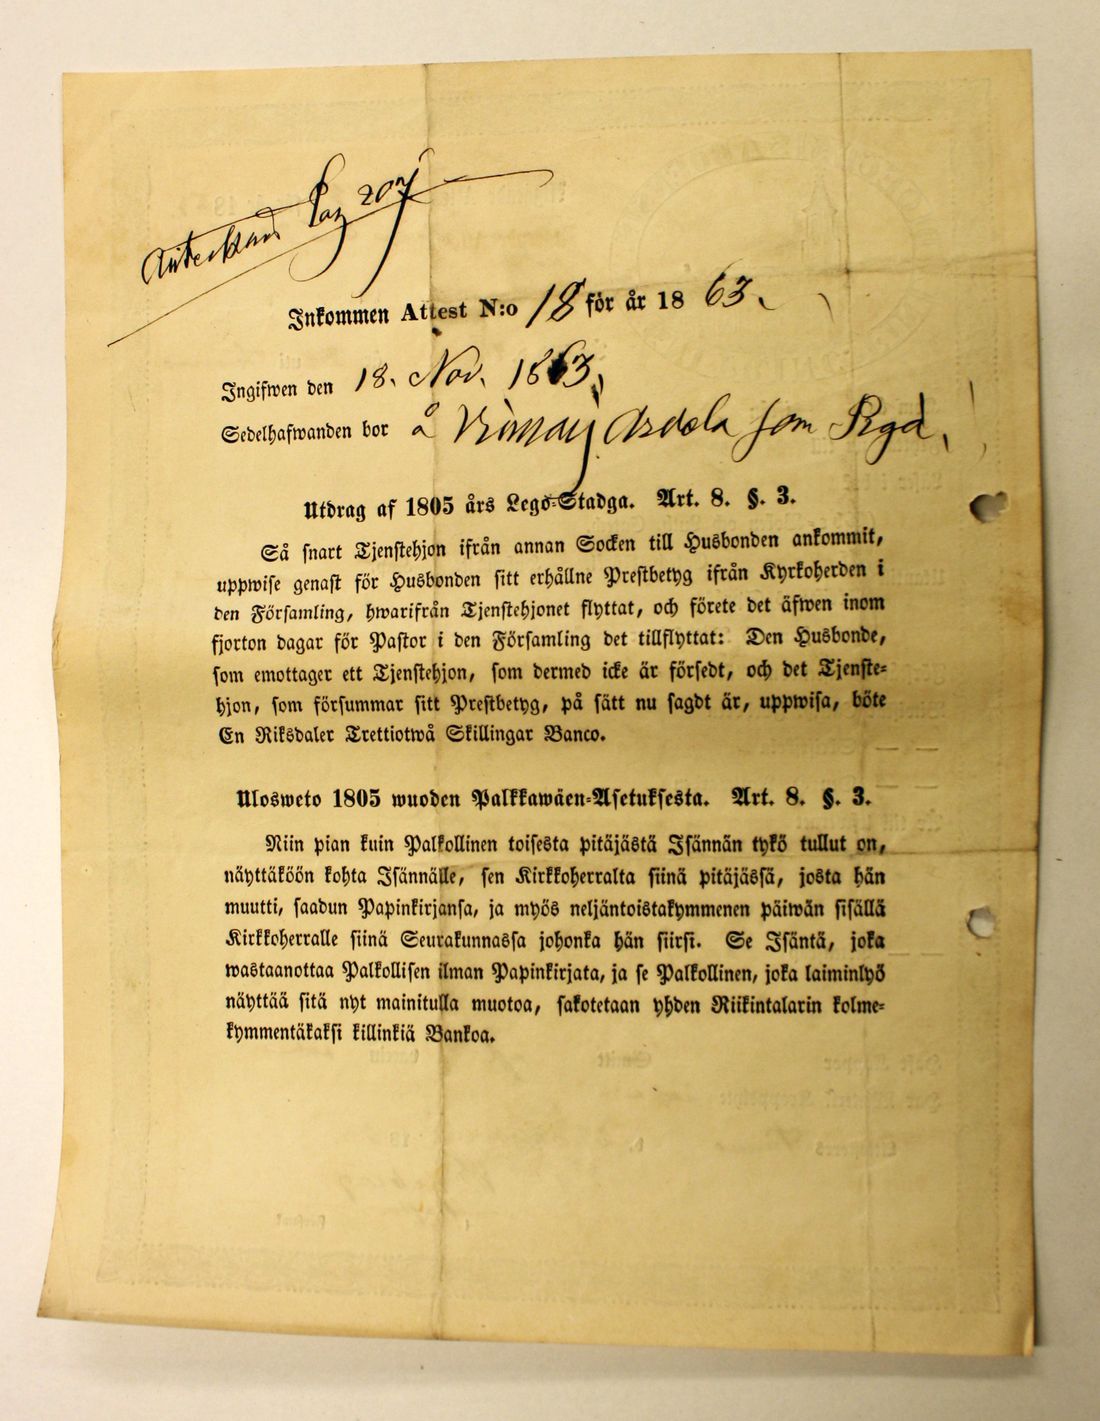 Antecknad Pag 207
Inkommen Attest N:o 18 för år 1863.
Ingifwen den 18. Nov. 1863.
Sedelhafwanden bor å
Utdrag af 1805 års Lego-Stadga. Art. 8. §. 3.
Så snart Tjenstehjon ifrån annan Socken till Husbonden ankommit,
uppwise genast för Husbonden sitt erhållne Prestbetyg ifrån Kyrkoherden i
den Församling, hwarifrån Tjenstehjonet flyttat, och förete det äfwen inom
fjorton dagar för Pastor i den Församling det tillflyttat: Den Husbonde,
som emottager ett Tjenstehjon, som dermed icke är försedt, och det Tjenste-
hjon, som försummar sitt Prestbetyg, på sätt nu sagdt är, uppwisa, böte
En Riksdaler Trettiotwå Skillingar Banco.
Ulosweto 1805 wuoden Palkkawäen-Asetuksesta. Art. 8. §. 3.
Niin pian kuin Palkollinen toisesta pitäjästä Isännän tykö tullut on,
näyttäköön kohta Isännälle, sen Kirkkoherralta siinä pitäjässä, josta hän
muutti, saadun Papinkirjansa, ja myös neljäntoistakymmenen päiwän sisällä
Kirkkoherralle siinä Seurakunnassa johonka hän siirsi. Se Isäntä, joka
wastaanottaa Palkollisen ilman Papinkirjata, ja se Palkollinen, joka laiminlyö
näyttää sitä nyt mainitulla muotoa, sakotetaan yhden Riikintalarin kolme-
kymmentäkaksi killinkiä Bankoa.